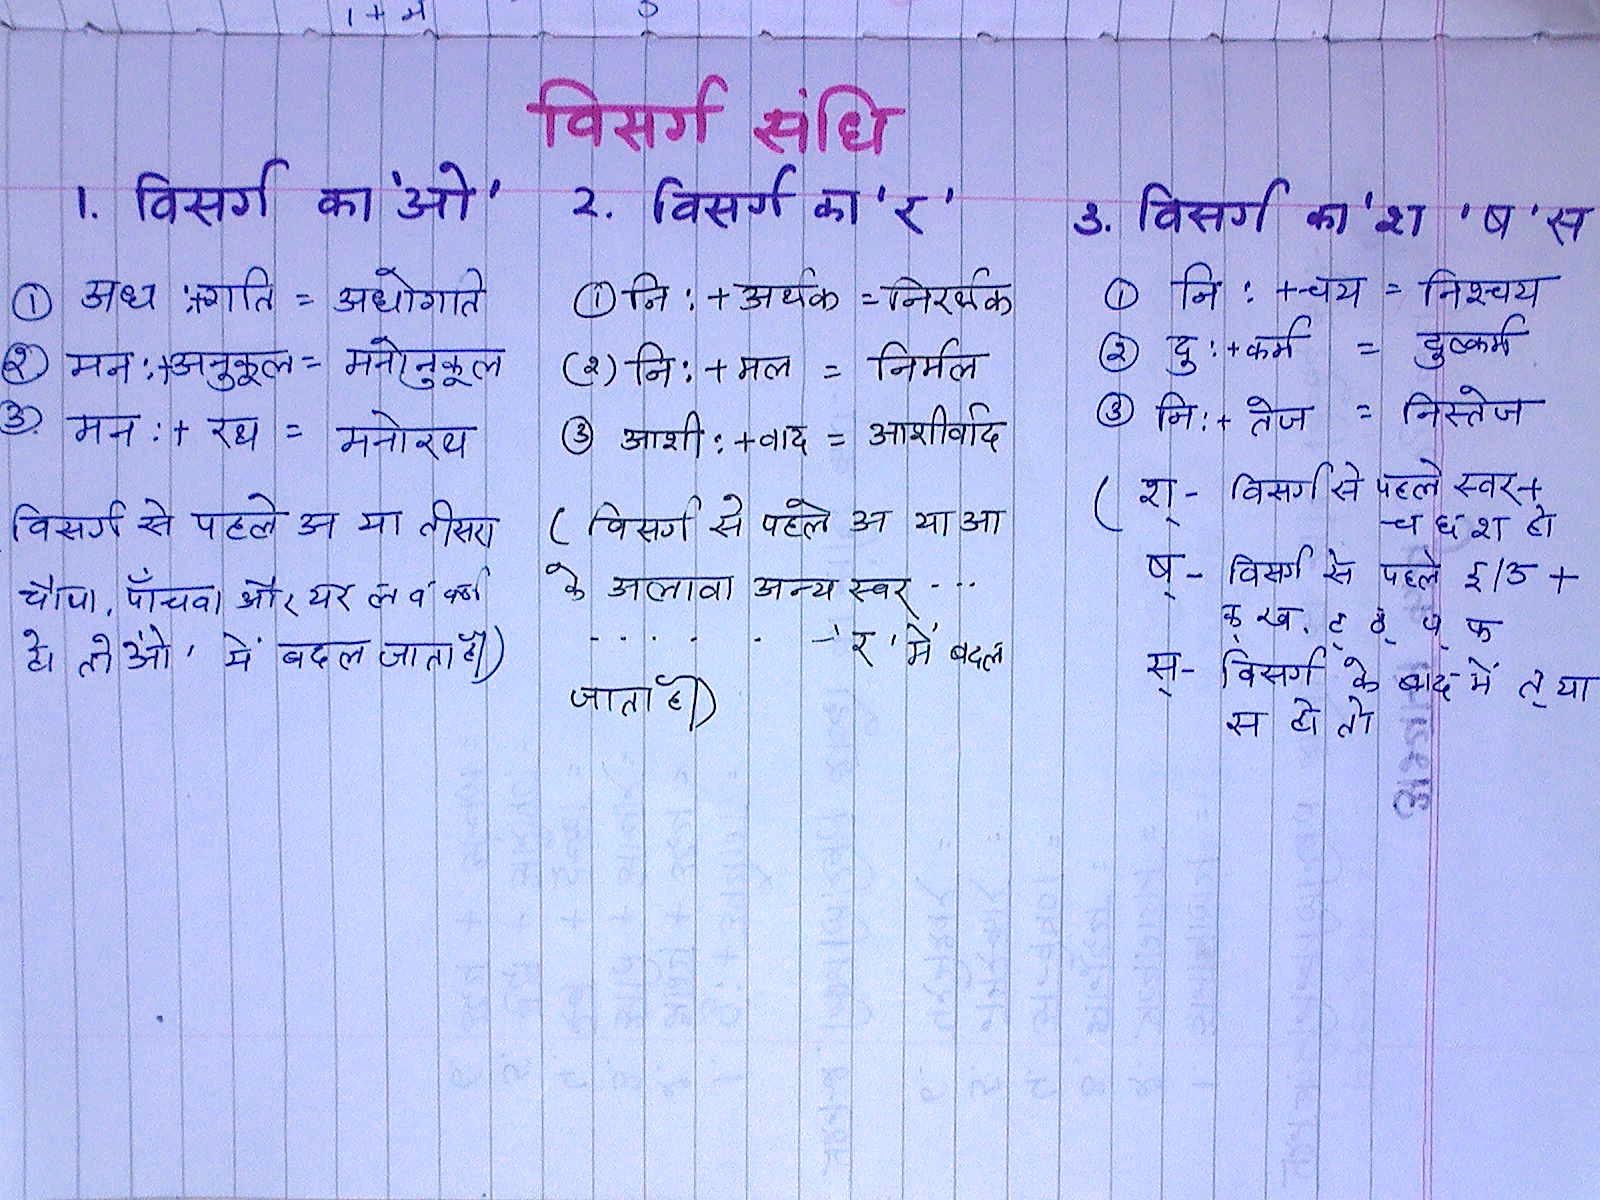 विसर्ग संधि
1. विसर्ग का 'ओ'
① अध :+गति = अधोगति
② मन :+अनुकूल = मनोनुकूल
③ मन :+ रथ = मनोरथ
विसर्ग से पहले अ या तीसरा
चौथा, पाँचवा और य र ल व वर्ण
हो तो 'ओ' में बदल जाता है)
२. विसर्ग का 'र'
① नि : + अर्थक = निरर्थक
(२) नि : + मल = निर्मल
③ आशी : +वाद = आशीर्वाद
( विसर्ग से पहले अ या आ
के अलावा अन्य स्वर् ...
. . . . . . - 'र' में बदल
जाता है)
3. विसर्ग का 'श 'ष 'स
① नि : +चय = निश्चय
② दु : +कर्म = दुष्कर्म
③ नि : + तेज = निस्तेज
( श् - विसर्ग से पहले स्वर् +
च छ श हो
ष् - विसर्ग से पहले इ/उ +
क् ख. ट् ठ् प् फ
स् - विसर्ग के बाद में त् या
स हो तो